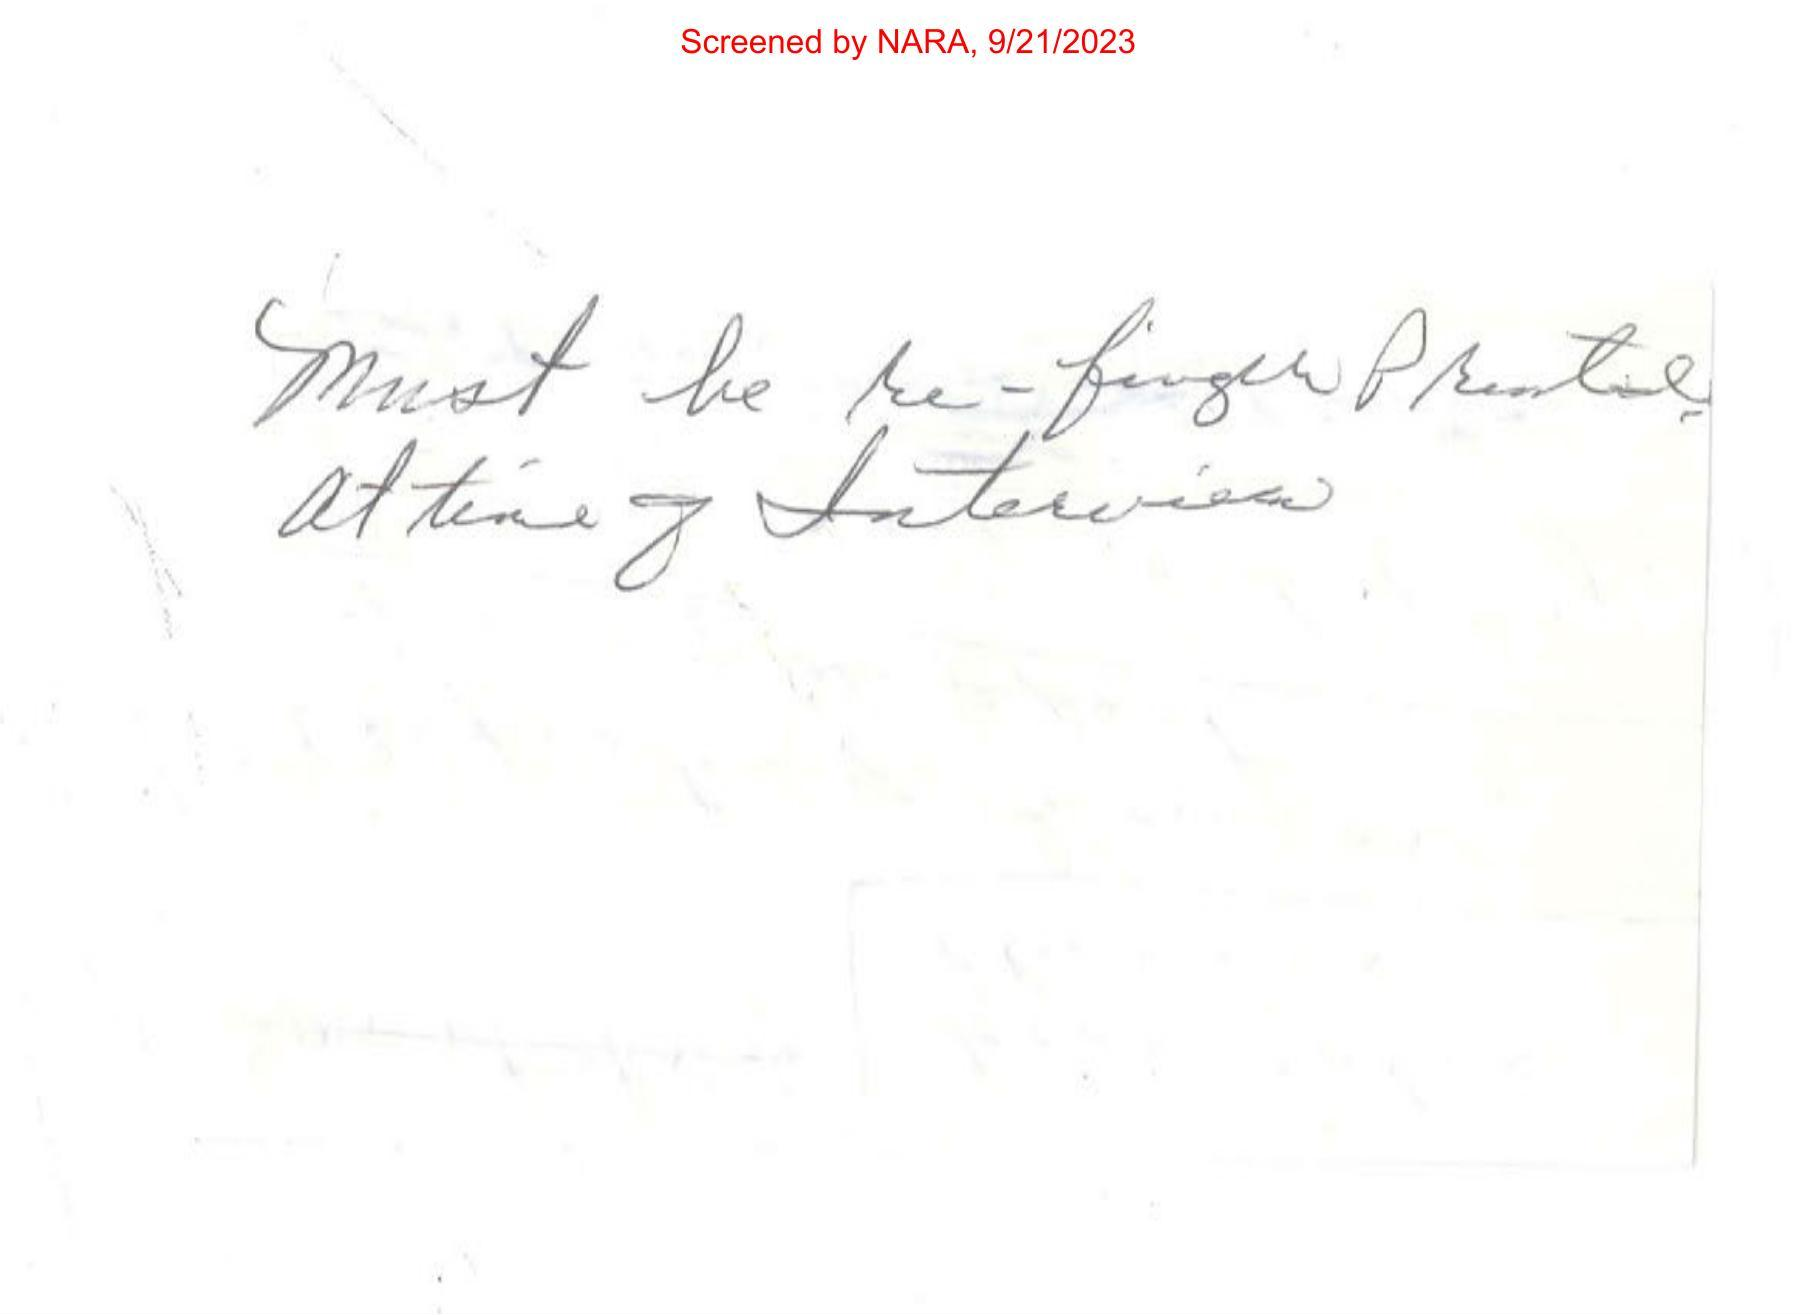 Screened by NARA, 9/21/2023
Must be re-finger Printed
At time of Interview